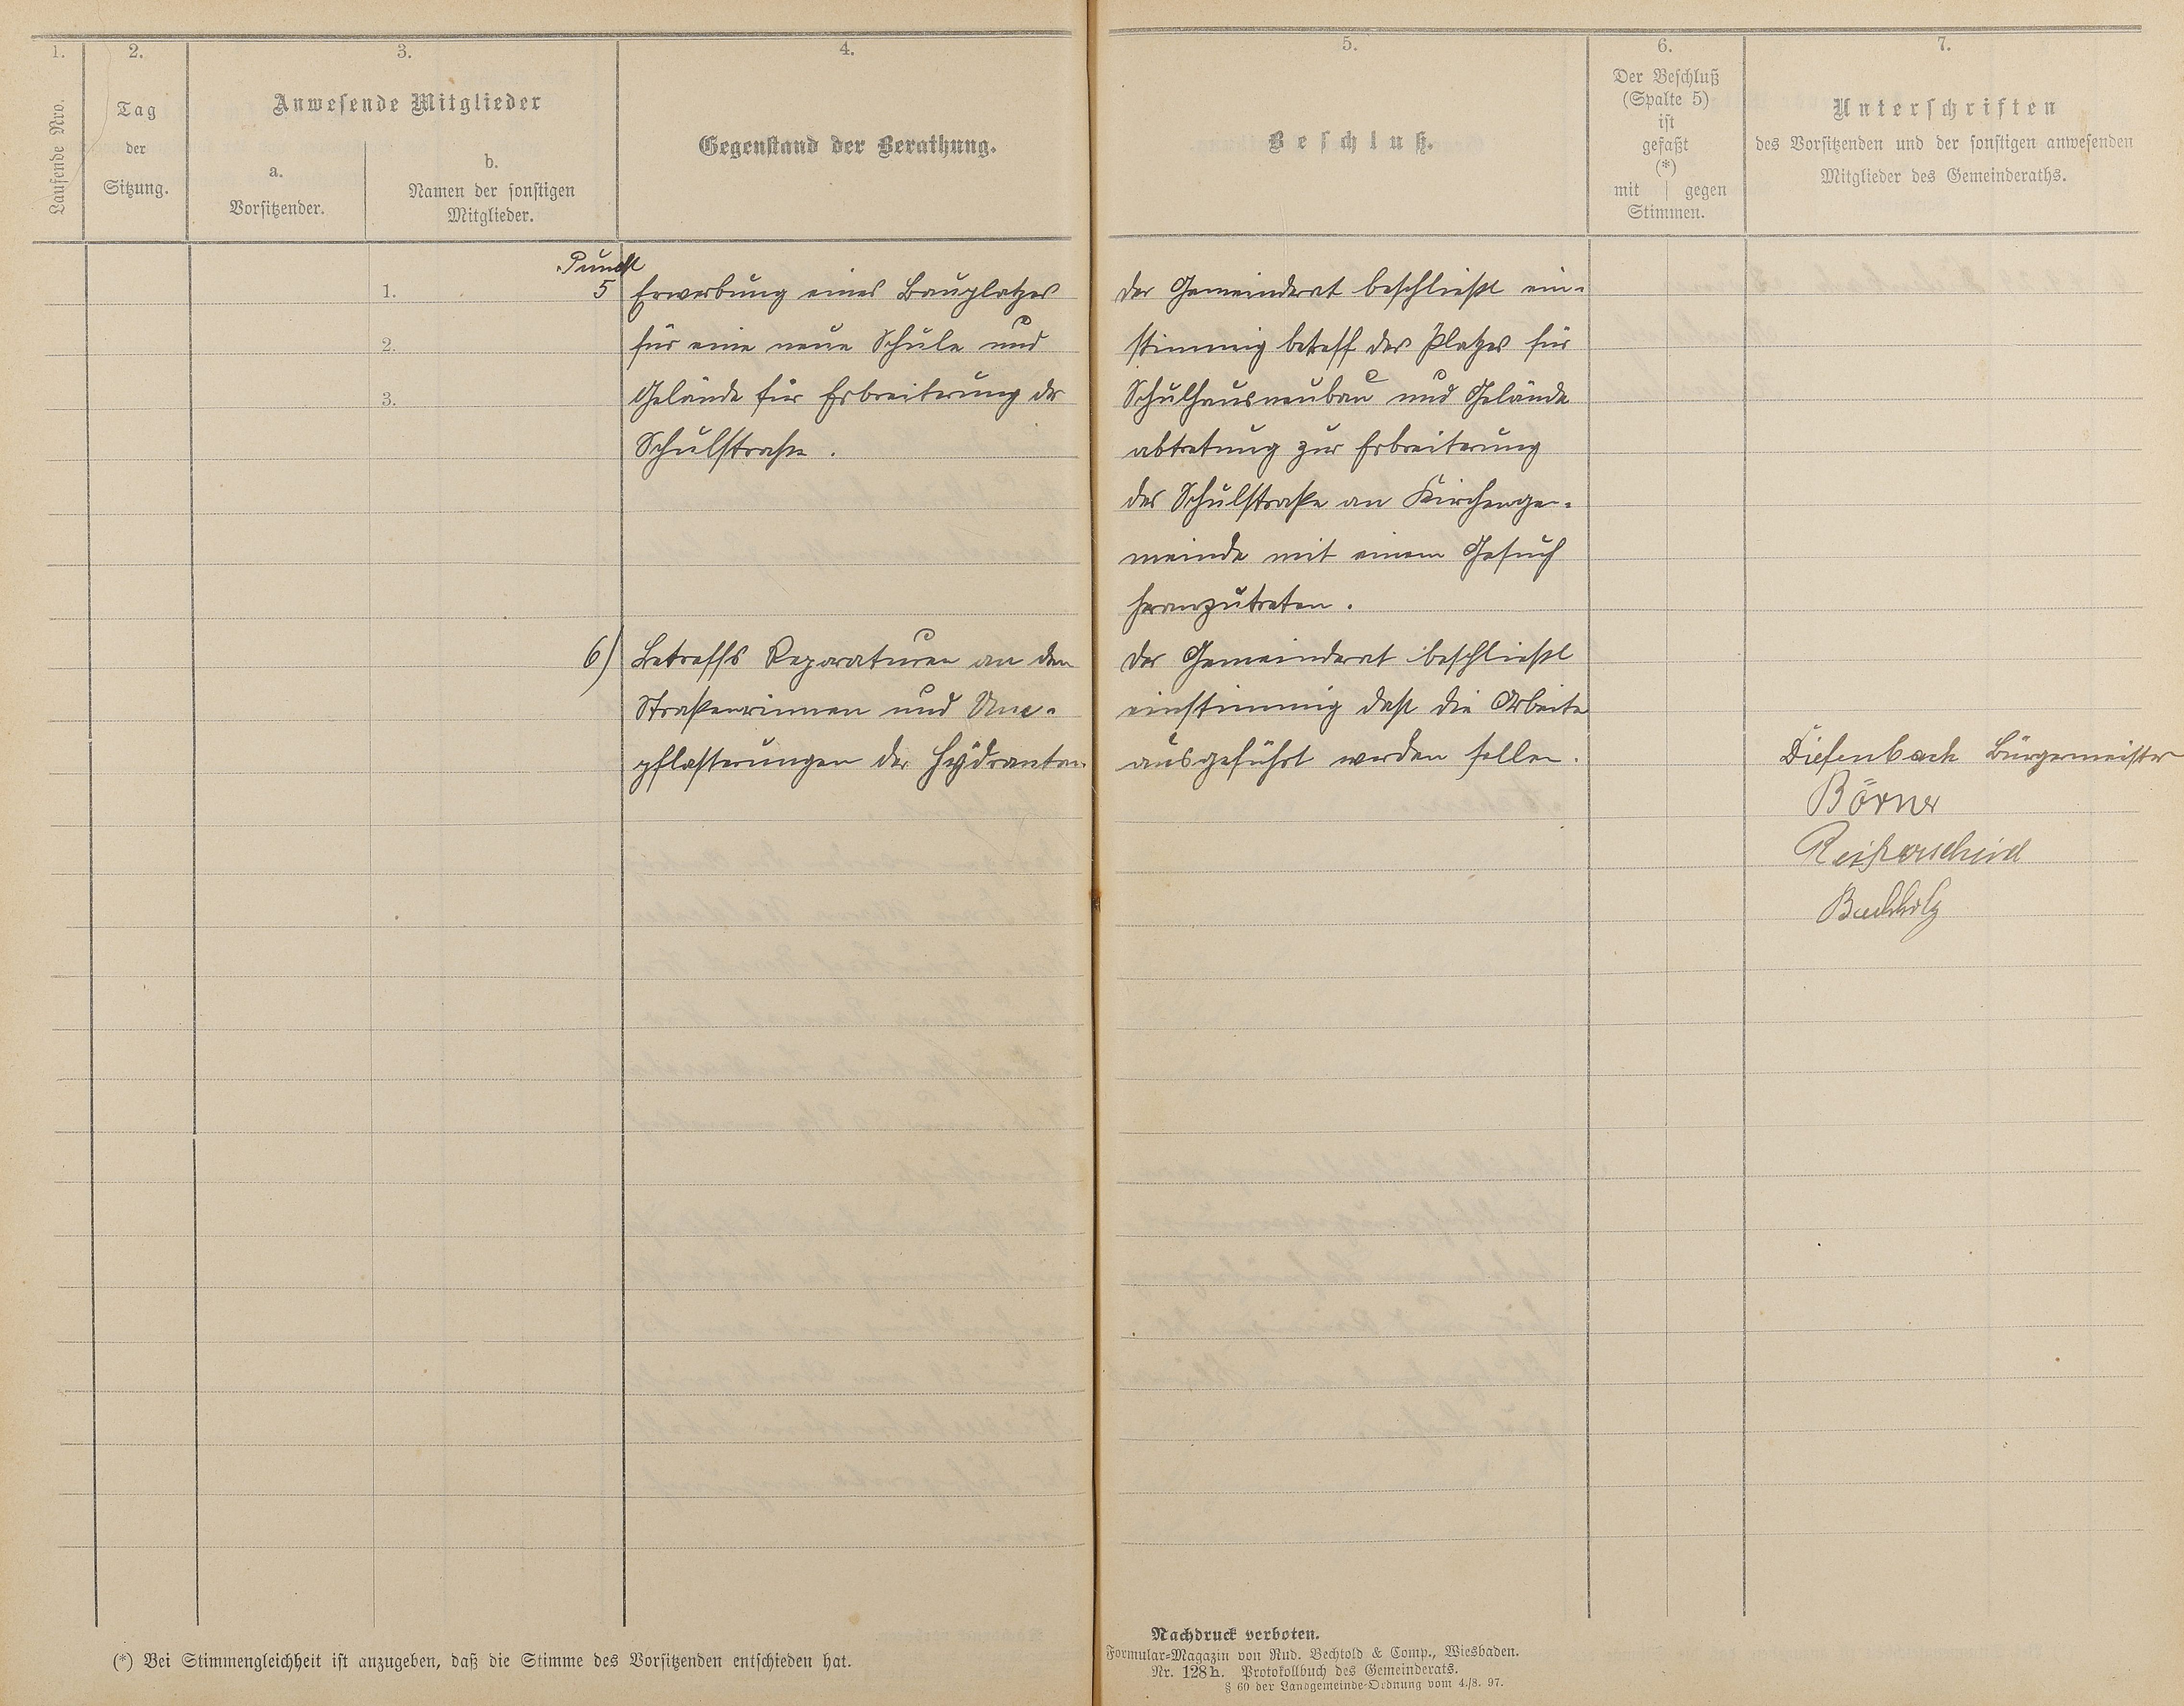 1.
2.
3.
4.
5.
6.
7.
Laufende Nro.
Tag
der
Sitzung.
Anwesende Mitglieder
a.
Vorsitzender.
b.
Namen der sonstigen
Mitglieder.
Gegenstand der Berathung.
Beschluß.
Der Beschluß
(Spalte 5)
ist
gefaßt
(*)
mit | gegen
Stimmen.
Unterschriften
des Vorsitzenden und der sonstigen anwesenden
Mitglieder des Gemeinderaths.
1.
2.
3.
Punckt
5 Erwerbung eines Bauplatzes
für eine neue Schule und
Gelände für Erbreiterung der
Schulstraße.
Der Gemeinderat beschließt ein-
stimmig betreff des Platzes für
Schulhausneubau und Gelände
abtretung zur Erbreiterung
der Schulstraße an Kirchenge-
meinde mit einem Gesuch
heranzutreten.
6) Betreffs Reparaturen an den
Straßenrinnen und Um-
pflasterungen der Hydranten.
Der Gemeinderat beschließt
einstimmig daß die Arbeite
ausgeführt werden sollen.
Diefenbach Bürgermeister
Börner
Reifferscheid
Buchholz
(*) Bei Stimmengleichheit ist anzugeben, daß die Stimme des Vorsitzenden entschieden hat.
Nachdruck verboten.
Formular-Magazin von Rud. Bechtold & Comp., Wiesbaden.
Nr. 128h. Protokollbuch des Gemeinderats.
§ 60 der Landgemeinde-Ordnung vom 4./8. 97.